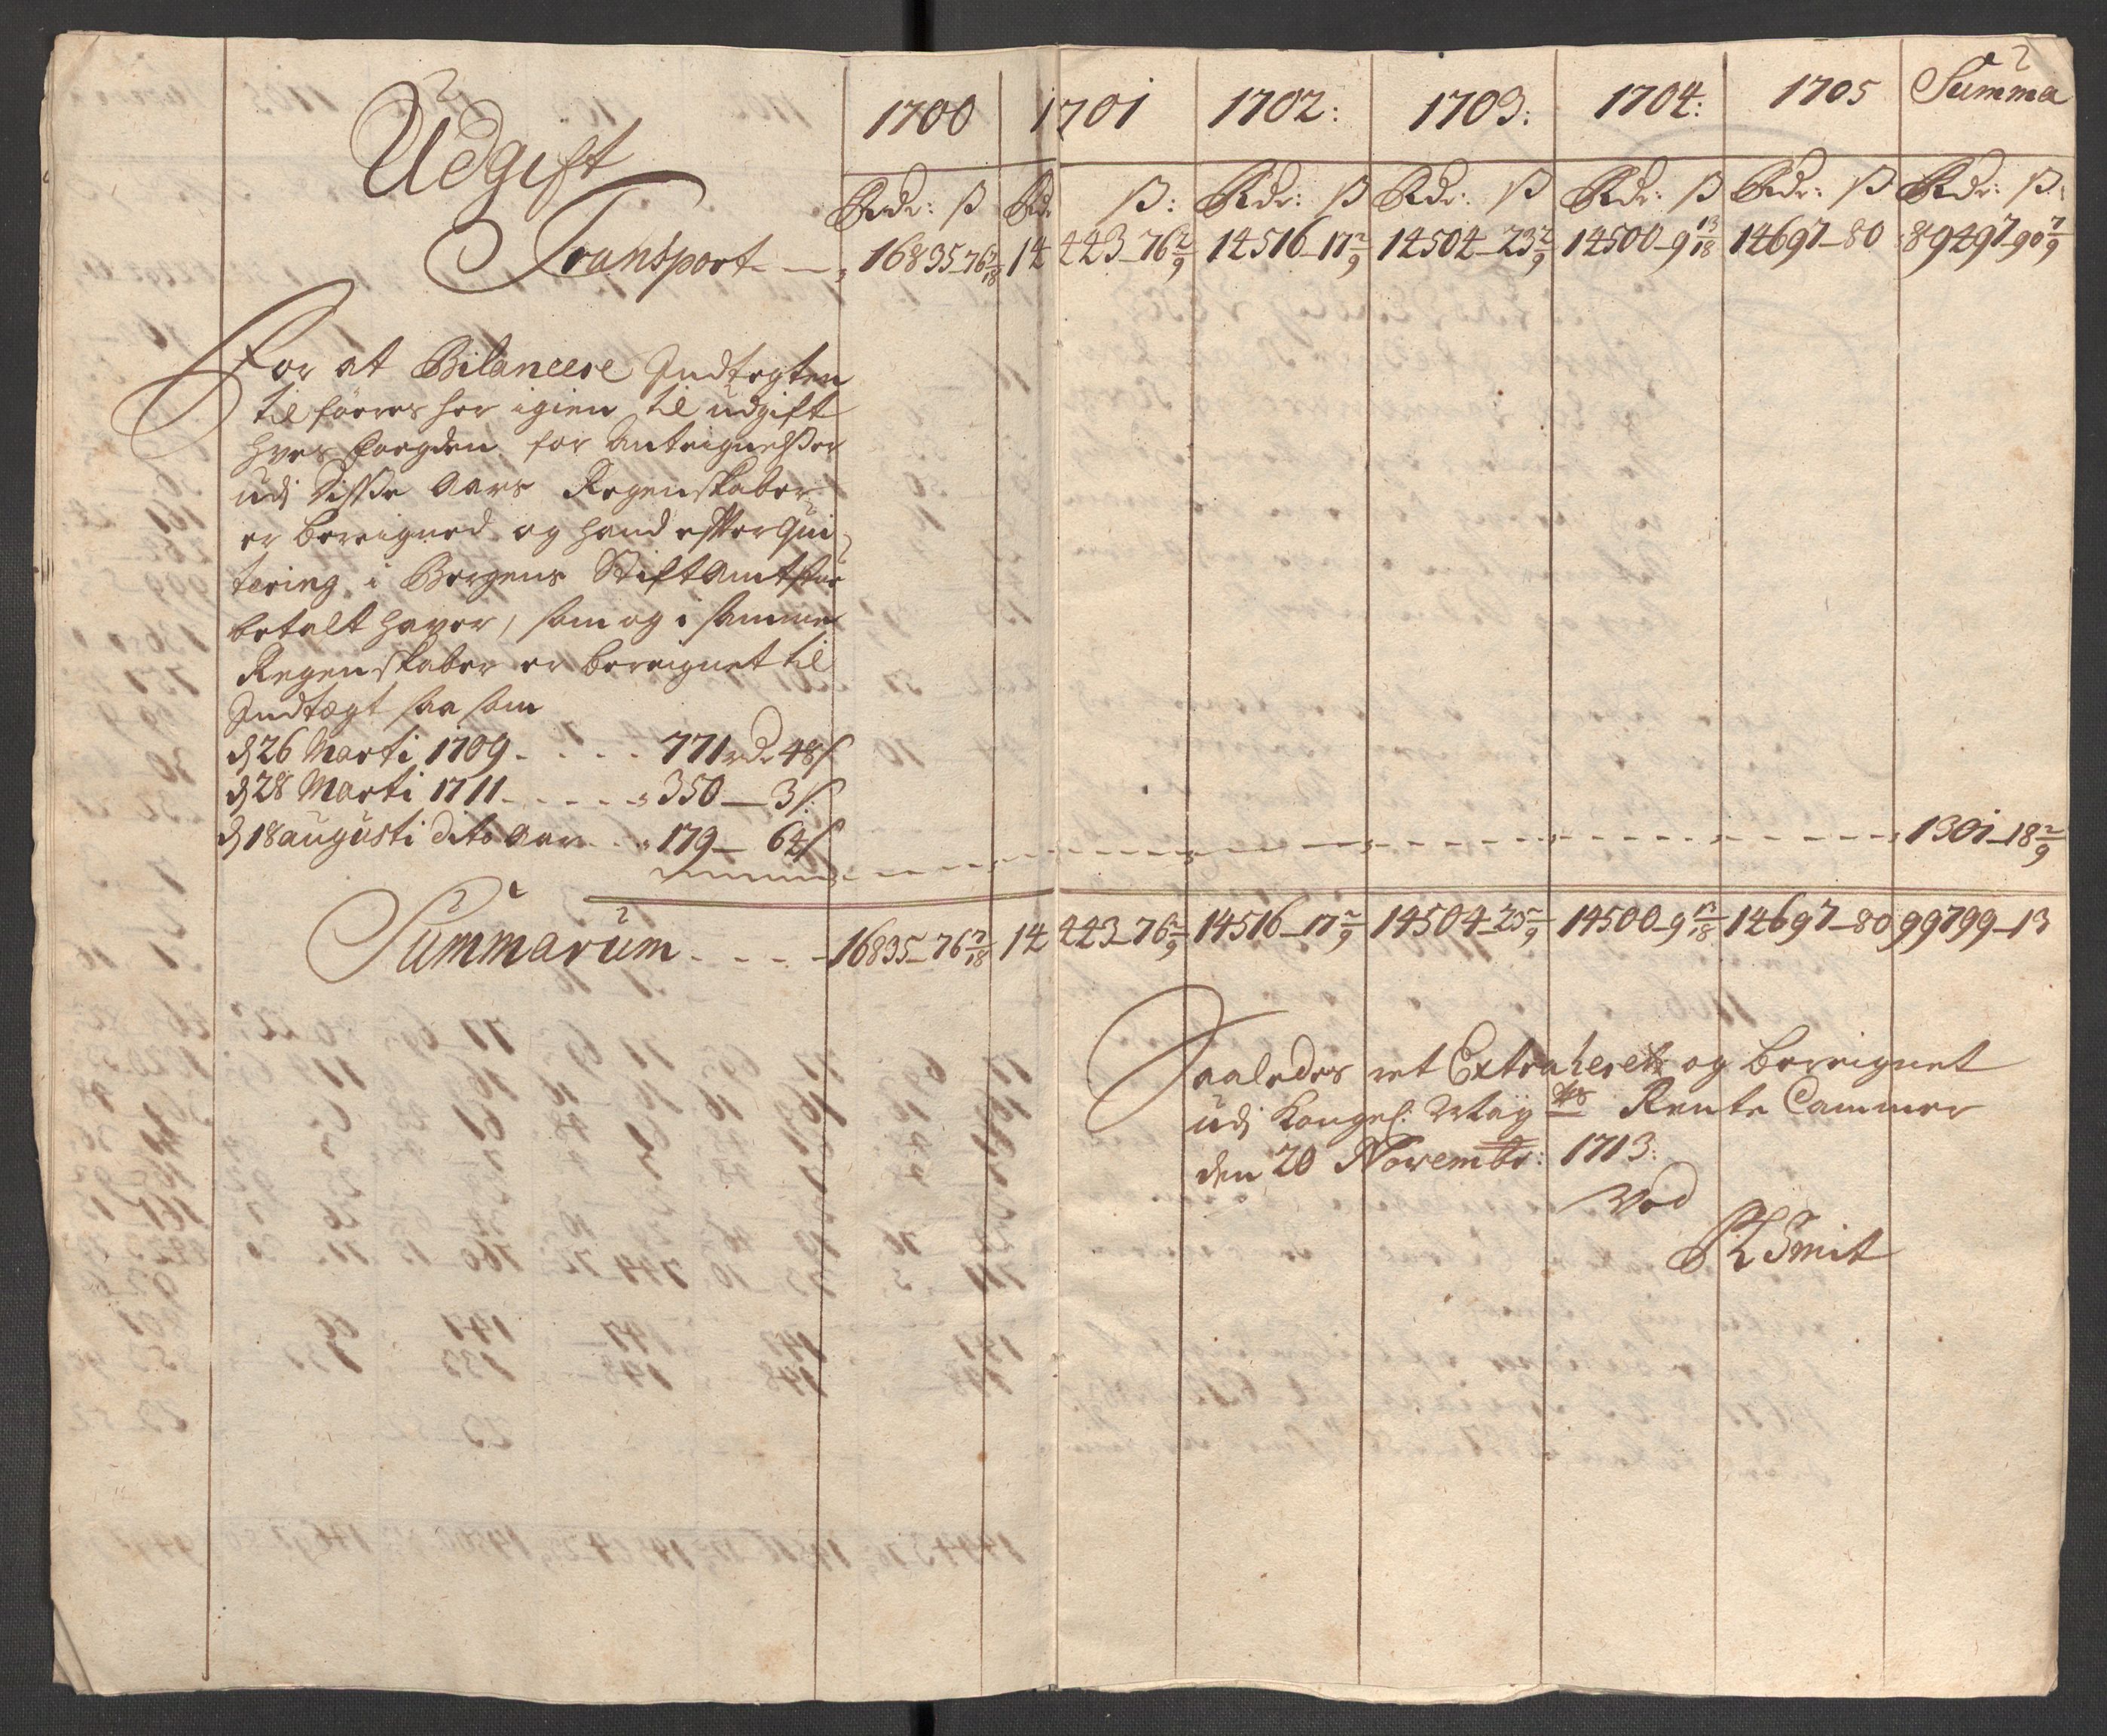 Udgift
1700 1701 1702: 1703: 1704: 1705 Summa
Rdr: ß Rdr ß: Rdr: ß Rdr: ß Rdr: ß Rdr: ß Rdr: ß:
Transport 16835-76 7/18 14443-76 2/9 14516-17 2/9 14504-23 2/9 14500-9 13/18 14697-80 89497-90 7/9
For at Bilancere Indtegten
til føeres her igien til udgift
hves fogden for Anteignelsser
udj disse Aars Regenskaber
er bereigned og hand efter Qui-
tering i Bergens Stiftamtstue
betalt haver, som og i samme
Regenskaber er bereignet til
Indtægt saa som
d 26 Marti 1709 - - - - 771 rdr 48 ß
d 28 Marti 1711 - - - - - 350 - 3 ß:
d 18 augusti dito Aar - - 179 - 64 ß 1301-18 2/9
Summarum - - - - 16835-76 7/18 14443-76 2/9 14516-17 2/9 14504-25 2/9 14500-9 13/18 14697-80 99799-13
Saaledes ret Extraheret og bereignet
udj Kongel: May ts Rente Cammer
den 20 Novembr: 1713:
Ved
Smit